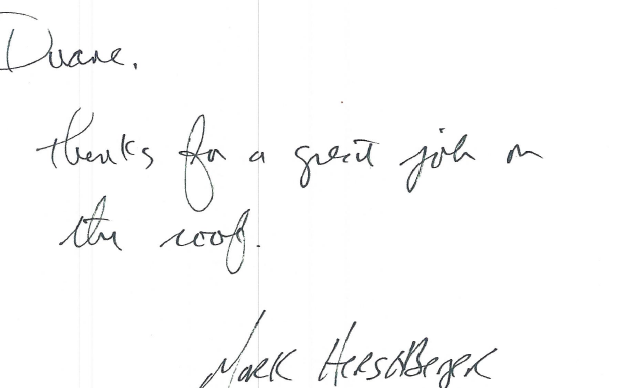 Duane.
thanks for a great job on
the roof.
Mark Hershberger